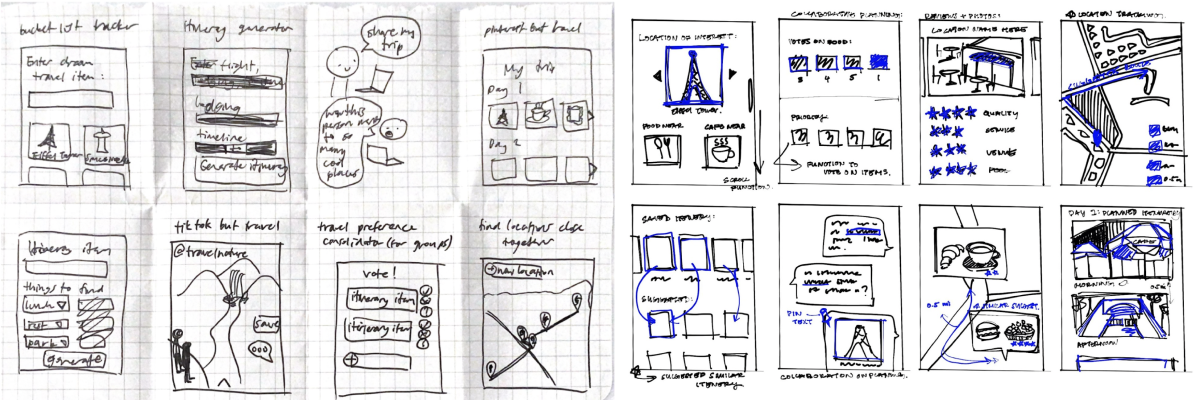 bucket list tracker
Enter dream
travel item:
Eiffel Tower
itinerary generator
flight,
lodging
timeline
Generate itinerary
share my
trip
person
to so
many
cool
places
pinterest but travel
My trip
Day 1
Day 2
Itinerary item
things to find
lunch
park
generate
tik tok but travel
@travelnature
save
travel preference
consolidator (for groups)
vote!
itinerary item
itinerary item
find locations close
together
new location
LOCATION OF INTEREST:
EIFFEL TOWER.
FOOD NEAR
CAFE NEAR
SCROLL
FUNCTION.
COLLABORATIVE PLANNING:
VOTES ON FOOD:
3 4 5 1
PRIORITY:
FUNCTION TO
VOTE ON ITEMS.
REVIEWS + PHOTOS:
LOCATION NAME HERE
QUALITY
SERVICE
VENUE
LOCATION TRACKING.
SAVED ITENERY:
SUGGESTION:
SUGGESTED SIMILAR
ITENERY
PIN
TEXT
COLLABORATION ON PLANNING.
0.5 mi
SIMILAR SUGGEST.
DAY 1: PLANNED ITENERARY
CAFE
MORNING
0.5m
AFTERNOON